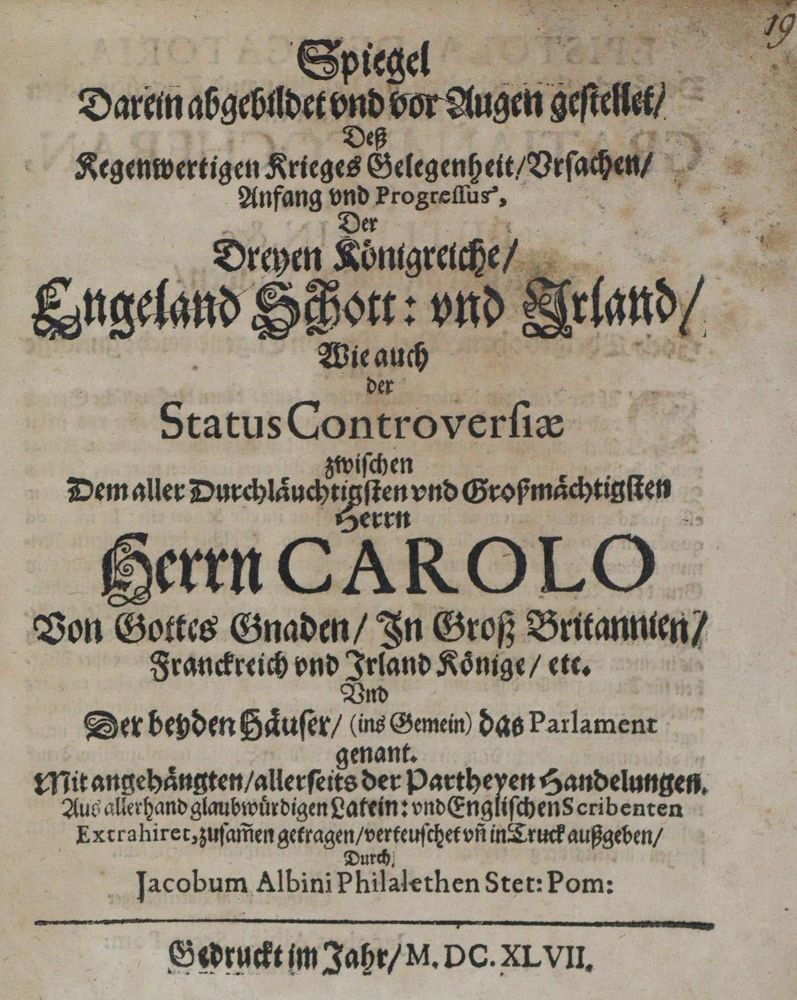 19
Spiegel
Darein abgebildet vnd vor Augen gestellet/
Deß
Kegenwertigen Krieges Gelegenheit/Vrsachen/
Anfang vnd Progressus,
Der
Dreyen Königreiche/
Engeland Schott: vnd Irland/
Wie auch
der
Status Controversiæ
zwischen
Dem aller Durchläuchtigsten vnd Großmächtigsten
Herrn
Herrn CAROLO
Von Gottes Gnaden/ In Groß Britannien/
Franckreich vnd Irland Könige/ etc.
Vnd
Der beyden Häuser/ (ins Gemein) das Parlament
genant.
Mit angehängten/allerseits der Partheyen Handelungen.
Aus allerhand glaubwürdigen Latein: vnd Englischen Scribenten
Extrahiret, zusam̃en getragen/verteuschet vñ in Truck außgeben/
Durch,
Jacobum Albini Philalethen Stet: Pom:
Gedruckt im Jahr/ M. DC. XLVII.